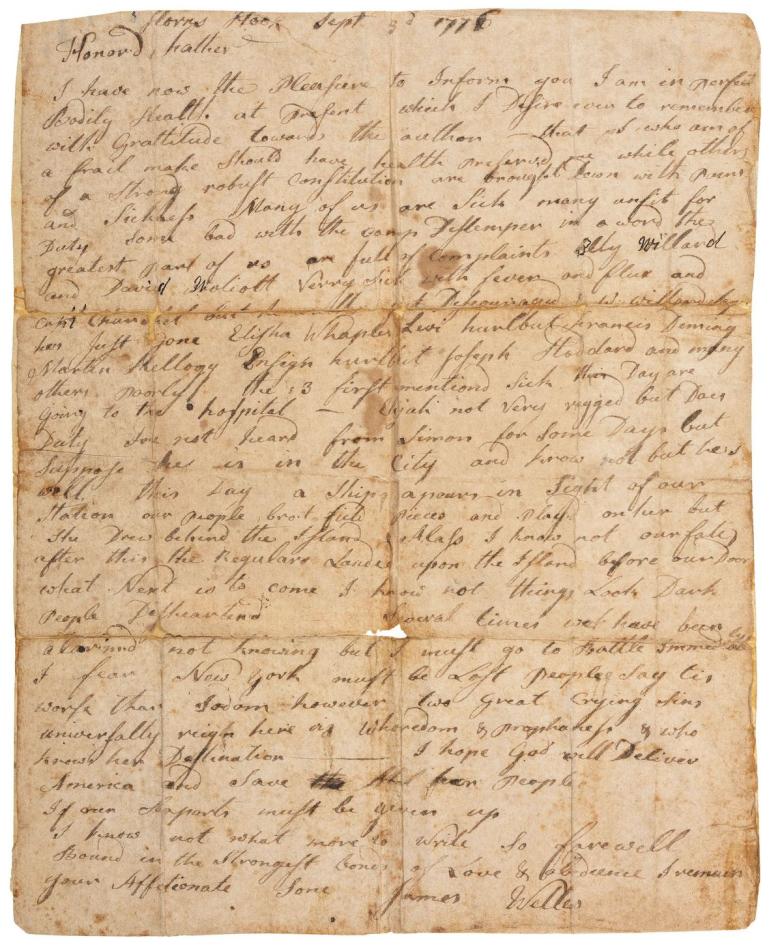 Horns Hook Sept 3d 1776
Honord, Father
I have now the Pleasure to Inform you I am in perfect
Bodily Health at Present which I Desire ever to remember
with Gratitude towards the author that I who am of
a frail make Should have health preserved me while others
of a Strong robust Constitution are brought Down with
and Sickness Many of us are Sick many unfit for
Duty Some bad with the camp Destemper in a word the
greatest part of us are full of complaints Willard
and David Wolcott Verry Sick with fever and flux and
capt Churchel but Discouraged willard
has Just gone Elisha Whaples Levi hurlbut Francis Deming
Martin Kellogg Ensign hurlbut Joseph Stoddard and many
others poorly the 3 first mentiond Sick this Day are
going to the hospital — Elijah not Very rugged but Does
Duty Ive not heard from Simon for Some Days but
Suppose hes is in the City and know not but hes
well this Day a Ship apears in Sight of our
Station our people brot field pieces and play'd on hur but
She Drew behind the Island Alass I know not our fate
after this the Regulars Landed upon the Island before our Door
what Next is to come I know not things Look Dark
People Disheartend Several times we have been
alarmnd not knowing but I must go to Battle
I fear New York must be Lost People Say tis
worse than Sodom however two Great Crying Sins
universally reign here viz Whoredom & prophaness & who
knows her Destination I hope God will Deliver
America and Save the People
If our Seaports must be given up
I know not what more to Write So farewell
Bound in the Strongest Bonds of Love & obedience I remain
your Affectionate Sone James Welles